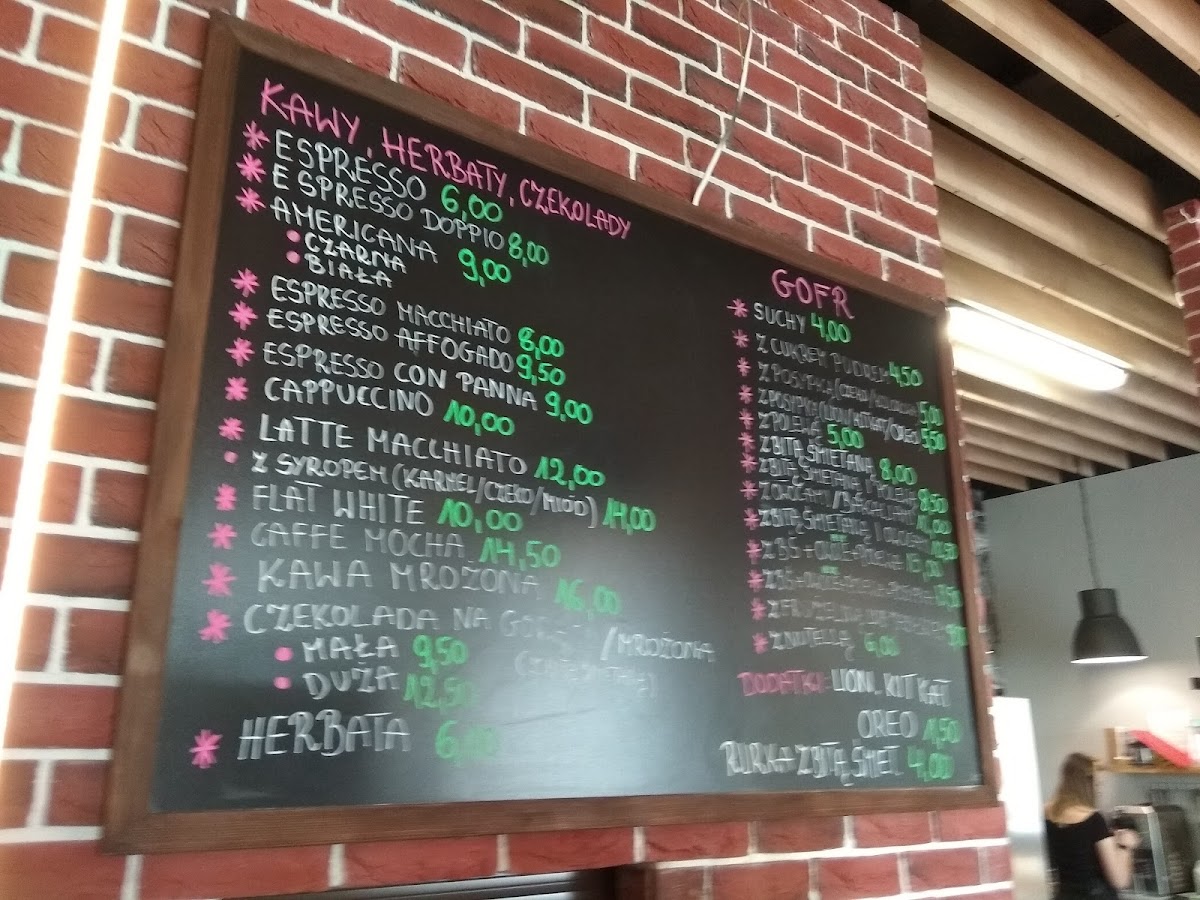 KAWY, HERBATY, CZEKOLADY
* ESPRESSO 6,00
* ESPRESSO DOPPIO 8,00
* AMERICANA 9,00
• CZARNA
• BIAŁA
* ESPRESSO MACCHIATO 8,00
* ESPRESSO AFFOGADO 9,50
* ESPRESSO CON PANNA 9,00
* CAPPUCCINO 10,00
* LATTE MACCHIATO 12,00
• Z SYROPEM (KARMEL/CZEKO/MIÓD) 14,00
* FLAT WHITE 10,00
* CAFFE MOCHA 14,50
* KAWA MROŻONA 16,00
* CZEKOLADA NA /MROŻONA
• MAŁA 9,50
• DUŻA 12,50
* HERBATA 6,00
GOFR
* SUCHY 4,00
* Z CUKREM PUDREM 4,50
* Z POSYPKĄ 5,00
* Z POSYPKĄ (LION/KITKAT/OREO) 5,50
* Z POLEWĄ 5,00
* Z BITĄ ŚMIETANĄ 8,00
* Z BITĄ ŚMIETANĄ I POLEWĄ 8,50
* Z OWOCAMI/BAKALIAMI
* Z BITĄ ŚMIETANĄ I OWOCAMI
* Z NUTELLĄ 6,00
DODATKI: LION, KIT KAT
OREO 1,50
RURKA Z BITĄ ŚMIET. 4,00